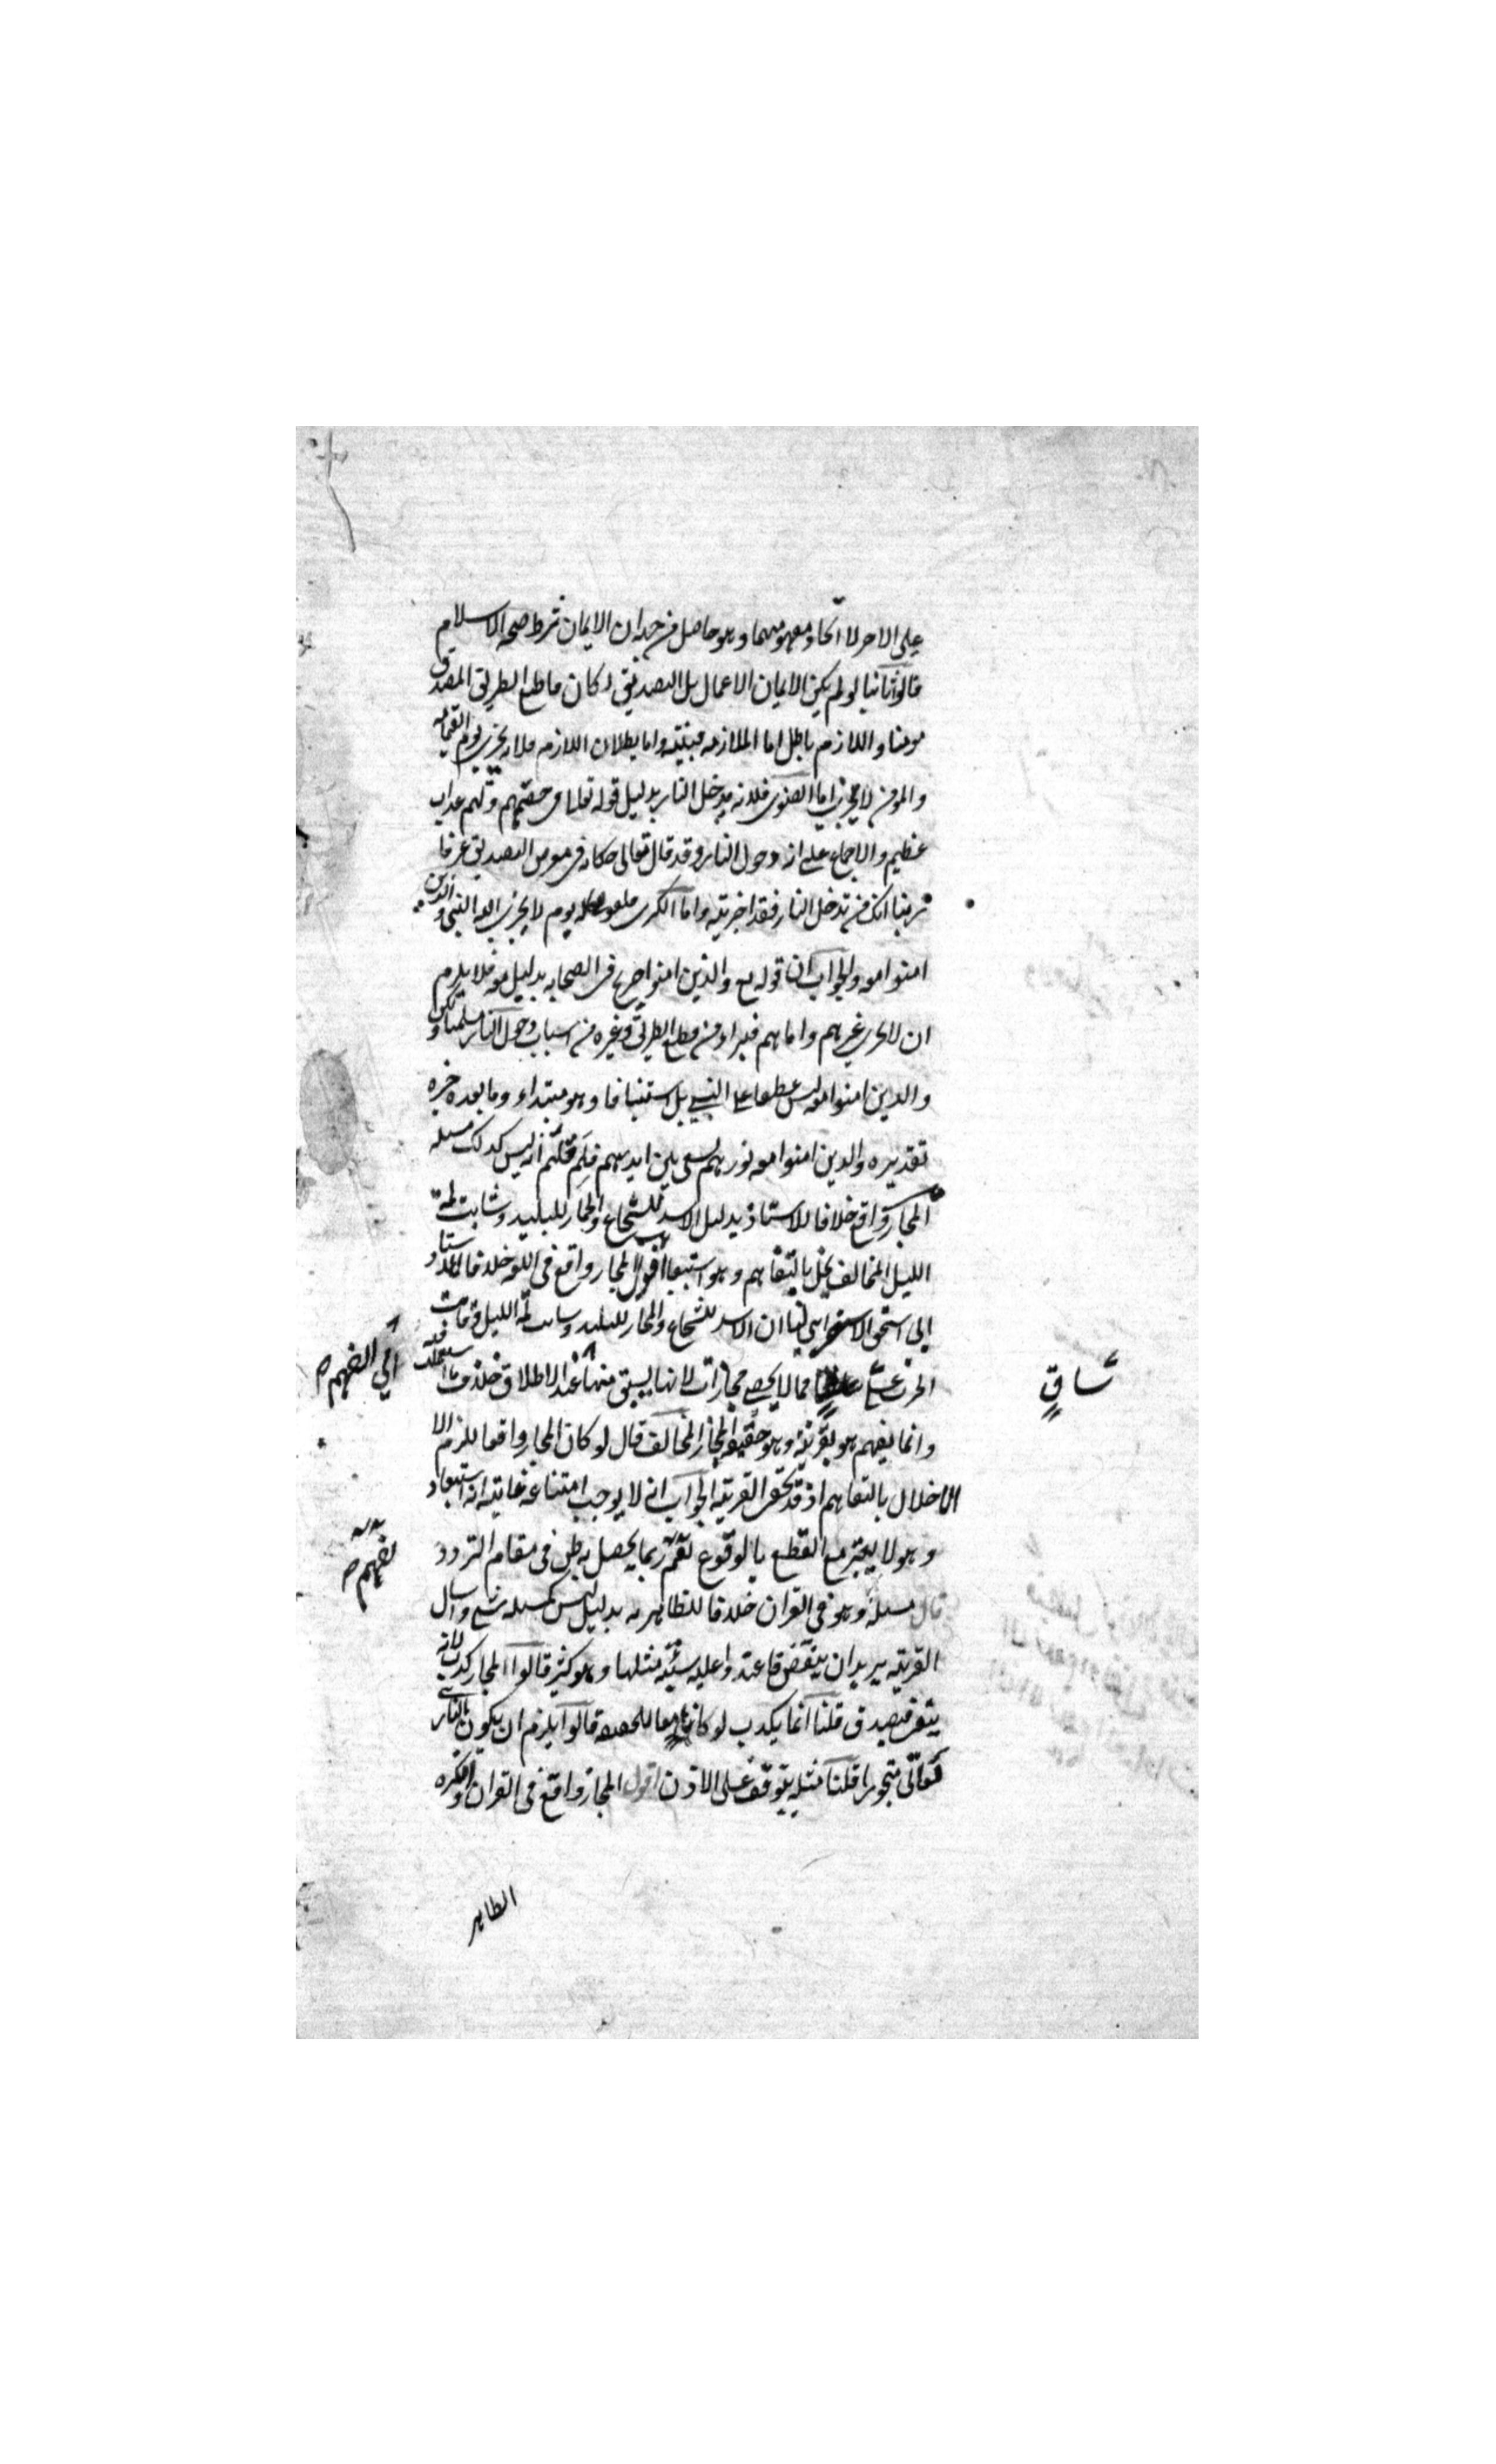 على الاخر لا اتحاد مفهوميهما وهو حاصل من حد ان الايمان شرط صحه الاسلام
قالوا ثانيا لو لم يكن الايمان الاعمال بل التصديق لكان قاطع الطريق المصدق
مومنا واللازم باطل اما الملازمه فبينه واما بطلان اللازم فلانه يخزى يوم القيامه
والمومن لا يخزى اما الصغرى فلانه يدخل النار بدليل قوله تعالى فى حقهم ولهم عذاب
عظيم والاجماع على انه دخول النار وقد قال تعالى حكايه فى معرض التصديق عرفا
ربنا انك من تدخل النار فقد اخزيته واما الكبرى فلقوله يوم لا يخزى الله النبى والذين
امنوا معه والجواب ان قوله والذين امنوا صريح فى الصحابه بدليل معه فلا يلزم
ان لا يخزى غيرهم واما هم فبراء من قطع الطريق وغيره من اسباب دخول النار سلمنا ولكن
والذين امنوا معه ليس عطفا على النبى بل استينافا وهو مبتداء وما بعده خبره
تقديره والذين امنوا معه نورهم يسعى بين ايديهم فلم قلتم انه ليس كذلك مسله
المجاز واقع خلافا للاستاذ بدليل الاسد للشجاع والحمار للبليد وشابت لمة
الليل المخالف يخل بالتفاهم وهو استبعاد اقول المجاز واقع فى اللغه خلافا للاستاد
ابى اسحق الاسفراينى لنا ان الاسد للشجاع والحمار للبليد وشابت لمة الليل وقامت
الحرب على ساق مما لا يحصى مجازات لانها يسبق منها عند الاطلاق خلاف ما استعملت فيه
الى الفهم
وانما يفهم هو بقرينة وهو حقيقه المجاز المخالف قال لو كان المجاز واقعا للزم الا
الاخلال بالتفاهم اذ قد تخفى القرينه الجواب انه لا يوجب امتناعه غايته انه استبعاد
وهو لا يعتبر مع القطع بالوقوع نعم ربما يحصل به ظن فى مقام التردد
قال مسله وهو فى القران خلافا للظاهريه بدليل ليس كمثله شى واسال
القريه يريد ان ينقض فاعتدوا عليه سيئة مثلها وهو كثير قالوا المجاز كذب لانه
ينتفى فيصدق قلنا انما يكذب لو كانا معا للحقيقه قالوا يلزم ان يكون البارى
تعالى متجوزا قلنا مثله يتوقف على الاذن اقول المجاز واقع فى القران وانكره
الظاهر